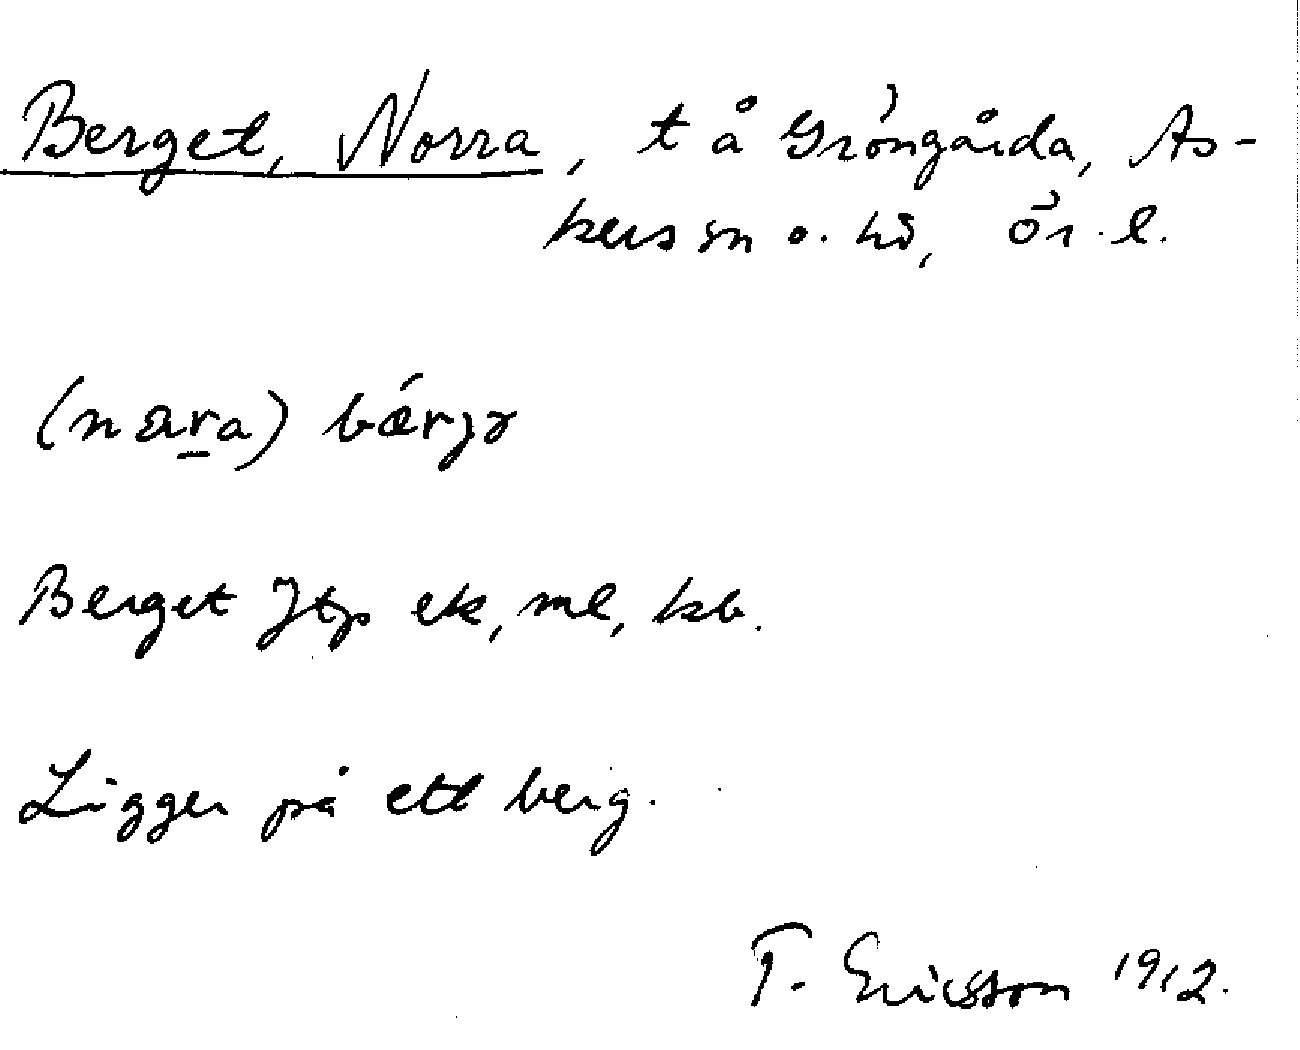 Berget, Norra, t å Gröngårda, As-
kers sn o. hd, Ör. l.
(nara) bǽrjə
Berget Jtp ek, ml, kb.
Ligger på ett berg.
T. Ericsson 1912.